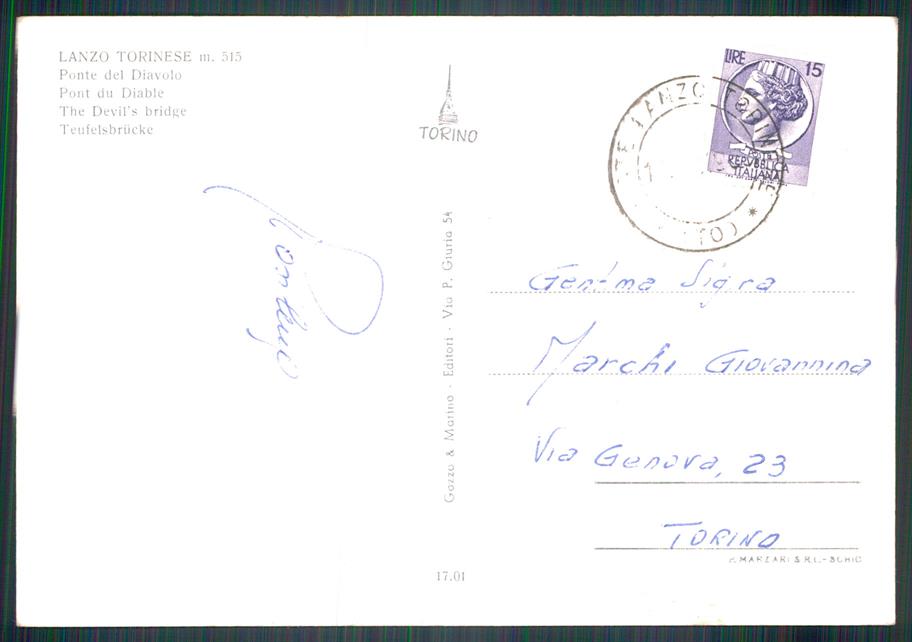 LANZO TORINESE m. 515
Ponte del Diavolo
Pont du Diable
The Devil's bridge
Teufelsbrücke
TORINO
Gazzo & Marino - Editori - Via P. Giuria 54
17.01
LIRE 15
REPVBBLICA
ITALIANA
LANZO TORIN
(TO) *
Gent.ma Sig.ra
Marchi Giovannina
Via Genova, 23
TORINO
MARZARI S.R.L. - SCHIO